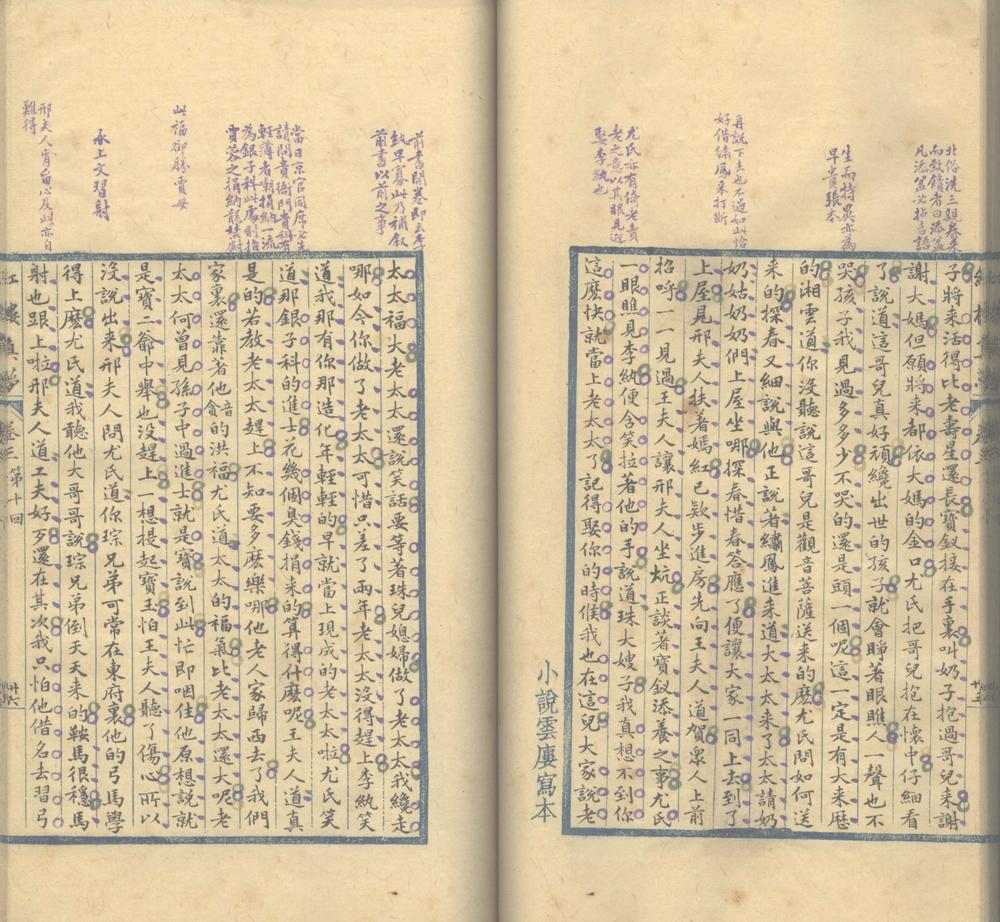 北俗洗三親眷來
而致餽者曰添盆
凡添盆必拈吉語
生而特異亦爲
早貴張本
再説下去也不過如此恰
好借繡鳳來打斷
尤氏亦有倚老賣
老之意以其眼見迎
娶李紈也
子將来活得比老壽星還長寶釵接在手裏叫奶子抱過哥兒来謝
謝大媽但願將来都依大媽的金口尤氏把哥兒抱在懷中仔細看
了說道這哥兒真好頑纔出世的孩子就會睜著眼瞧人一聲也不
哭孩子我見過多多少少不哭的還是頭一個呢這一定是有大来歷
的湘雲道你沒聽說這哥兒是觀音菩薩送来的麽尤氏問如何送
来的探春又細說與他正說著繡鳳進来道大太太来了太太請奶
奶姑奶奶們上屋坐哪探春惜春答應了便讓大家一同上去到了
上屋見邢夫人扶著嫣紅已欵步進房先向王夫人道賀衆人上前
招呼一一見過王夫人讓邢夫人坐炕正談著寶釵添養之事尤氏
一眼瞧見李紈便含笑拉著他的手說道珠大嫂子我真想不到你
這麽快就當上老太太了記得娶你的時候我也在這兒大家說老
小說雲廔寫本
前書開卷即云李
紈早寡此乃補叙
前書以前之事
當日京官同席必先
請問貴衙門貴科有
輕薄者嘲捐納一流
為銀子科此處則指
賈蓉之捐納龍禁尉
此福卻勝賈母
承上文習射
邢夫人肯留心及此亦自
難得
太太福大老太太還說笑話要等著珠兒媳婦做了老太太我纔走
哪如今你做了老太太可惜只差了兩年老太太沒得趕上李紈笑
道我那有你那造化年輕輕的早就當上現成的老太太啦尤氏笑
道那銀子科的進士花幾個臭錢捐来的算得什麽呢王夫人道真
是的若教老太太趕上不知要多麽樂哪他老人家歸西去了我們
家裏還靠著他蝕音的洪福尤氏道太太的福氣比老太太還大呢老
太太何曾見孫子中過進士就是寶說到此忙即咽住他原想說就
是寶二爺中舉也没趕上一想提起寶玉怕王夫人聽了傷心所以
沒說出来邢夫人問尤氏道你琮兄弟可常在東府裏他的弓馬學
得上麽尤氏道我聽他大哥哥說琮兄弟倒天天来的鞍馬很穩馬
射也跟上啦邢夫人道工夫好歹還在其次我只怕他借名去習弓
紅樓真夢 卷三 第十回 廿六